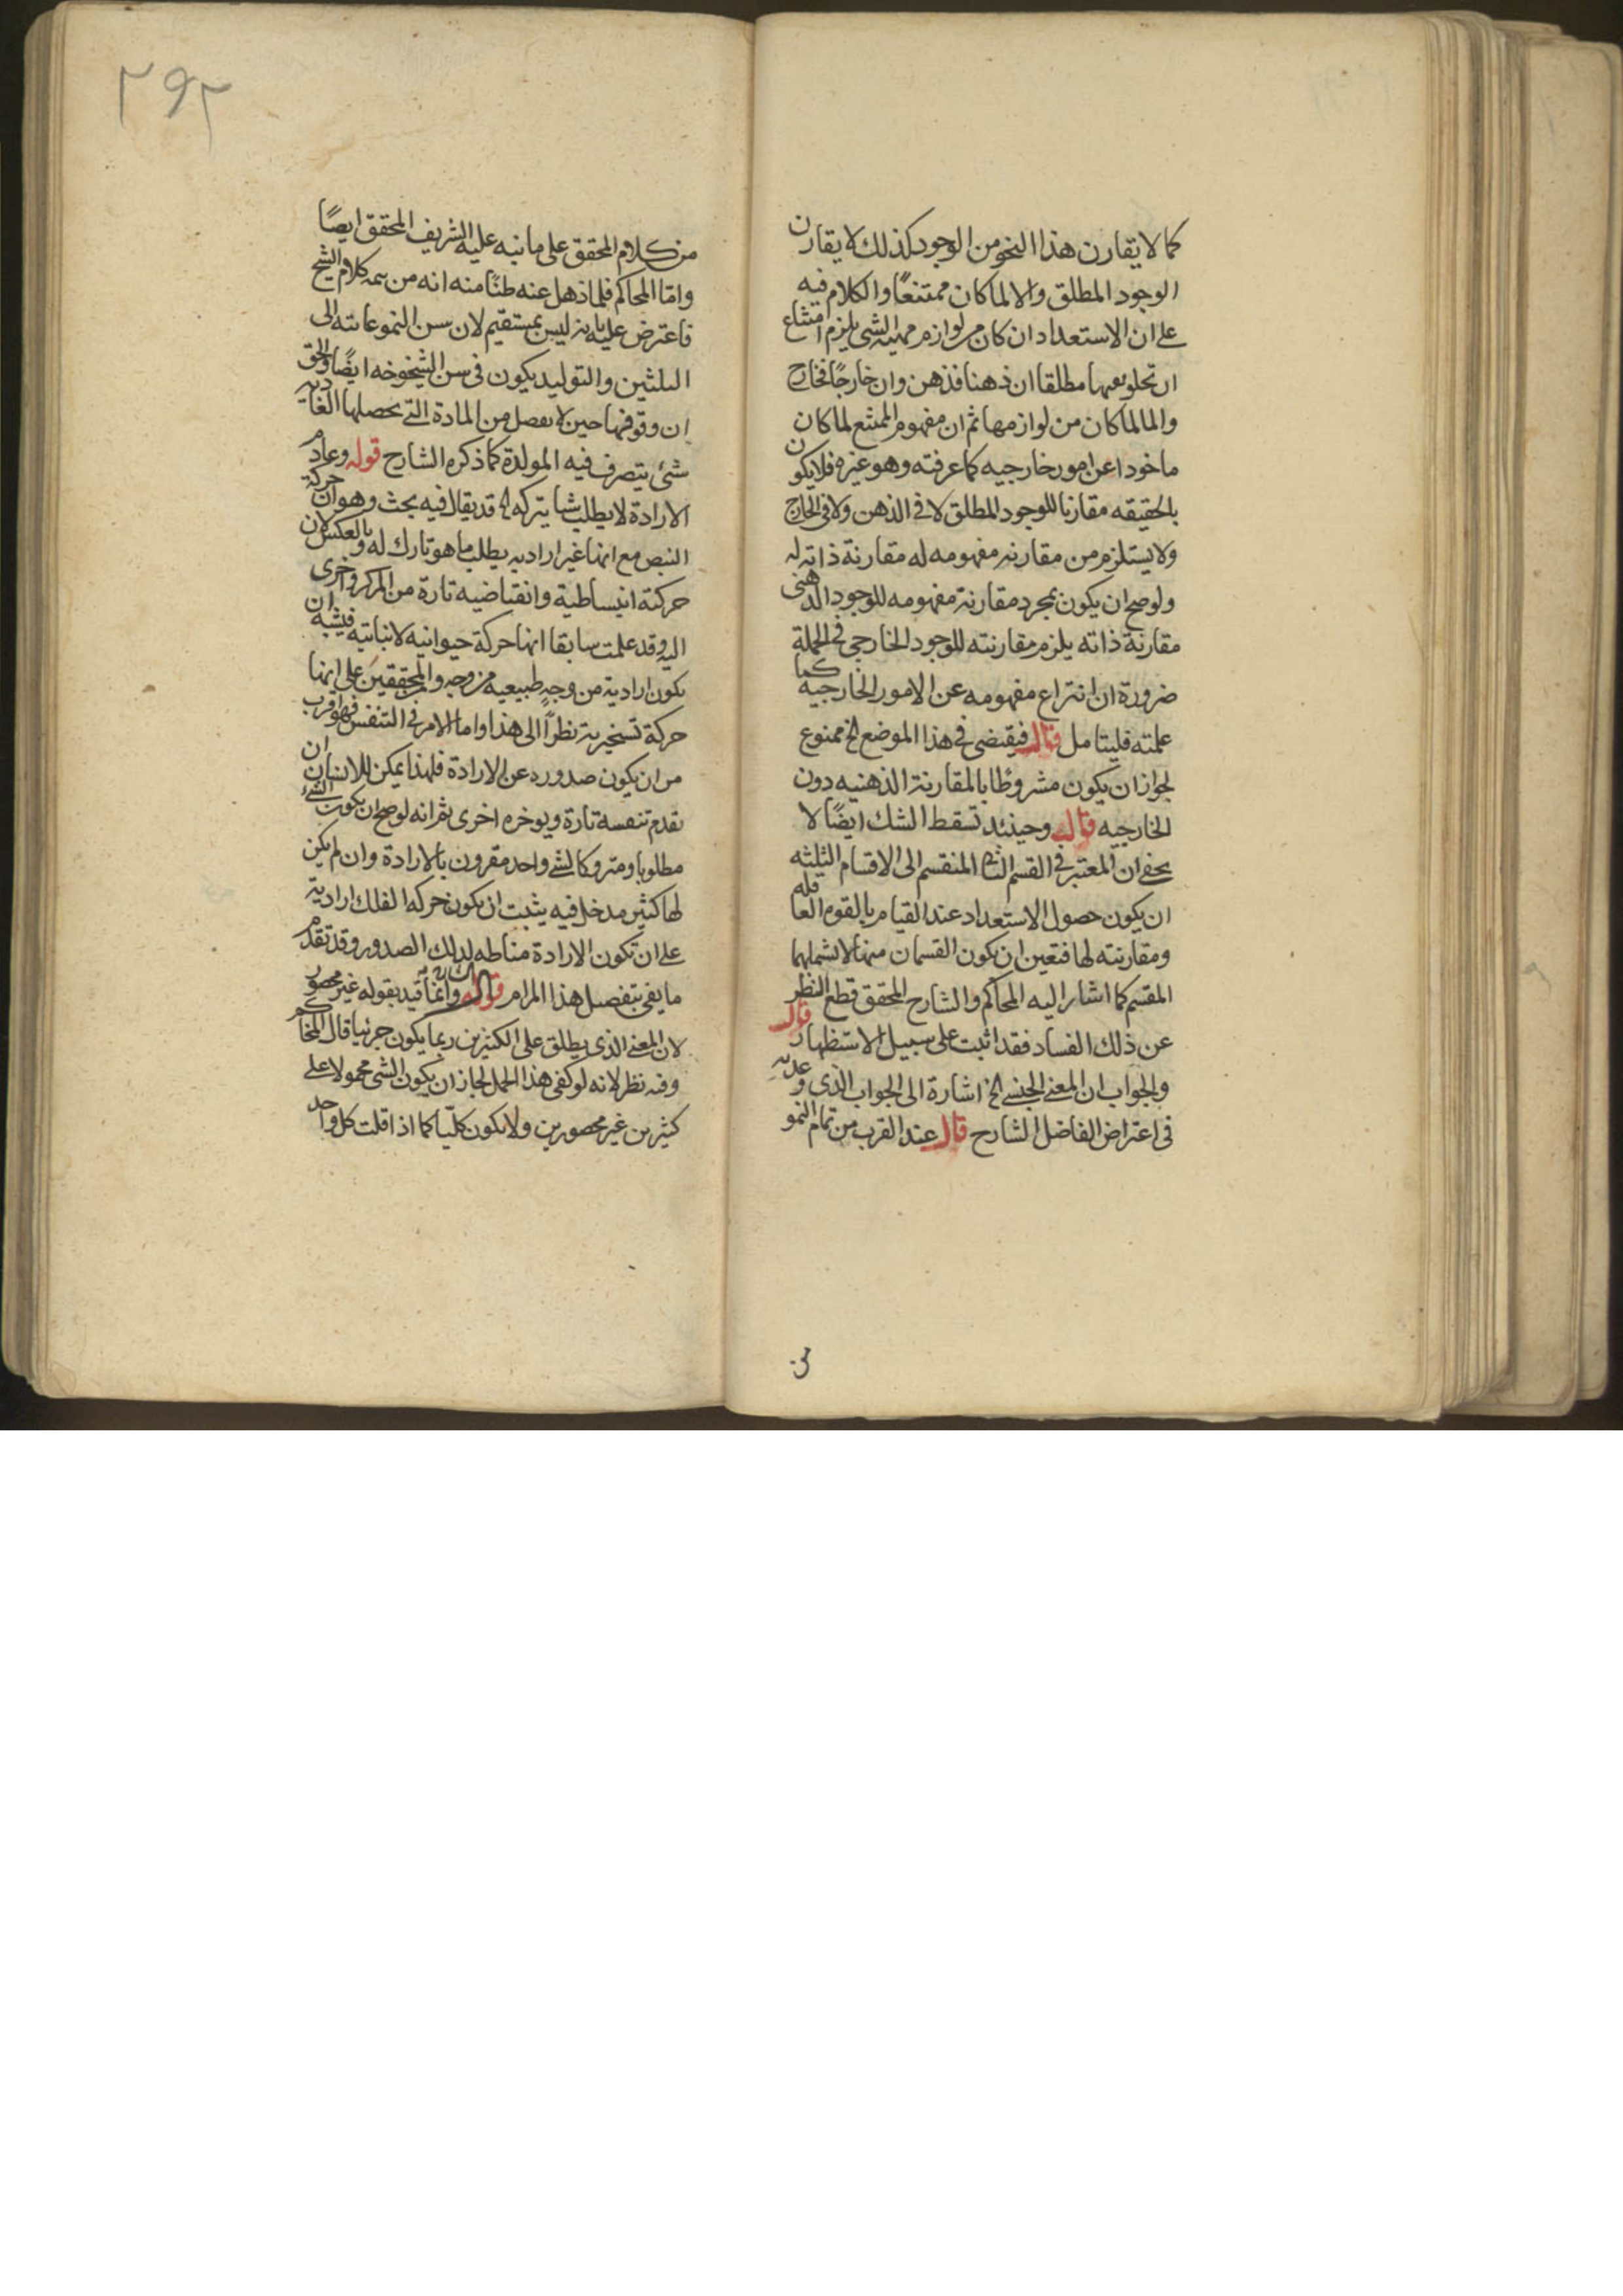 كما لا يقارن هذا النحو من الوجود كذلك لا يقارن
الوجود المطلق والا لما كان ممتنعًا والكلام فيه
على ان الاستعداد ان كان من لوازم مهية الشى يلزم امتناع
ان تخلو عنها مطلقا ان ذهنا فذهن وان خارجًا فخارج
والا لما كان من لوازمها ثم ان مفهوم الممتنع لما كان
ماخوذا عن امور خارجيه كما عرفته وهو غيره فلا يكون
بالحقيقه مقارنا للوجود المطلق لا فى الذهن ولا فى الخارج
ولا يستلزم من مقارنه مفهومه له مقارنة ذاته له
ولو صح ان يكون بمجرد مقارنة مفهومه للوجود الذهنى
مقارنة ذاته يلزم مقارنته للوجود الخارجى فى الجملة
ضرورة ان انتزاع مفهومه عن الامور الخارجية كما
علمته فليتامل قال فيقتضى فى هذا الموضع الخ ممنوع
لجواز ان يكون مشروطًا بالمقارنة الذهنيه دون
الخارجيه قال وحينئذ تسقط الشك ايضًا لا
يخفى ان المعتبر فى القسم الثانى المنقسم الى الاقسام الثلثه
ان يكون حصول الاستعداد عند القيام بالقوه العاقله
ومقارنته لها فتعين ان يكون القسمان منها لا تشملهما
المقسم كما اشار اليه المحاكم والشارح المحقق قطع النظر
عن ذلك الفساد فقد اثبت على سبيل الاستظهار قال
والجواب ان المعنى الجنسى الخ اشارة الى الجواب الذى وعد به
فى اعتراض الفاضل الشارح قال عند القرب من تمام النمو
من
٢٩٢
من كلام المحقق على ما نبه عليه الشريف المحقق ايضًا
وامّا المحاكم فلما ذهل عنه ظنًا منه انه من تتمه كلام الشيخ
فاعترض عليه بانه ليس بمستقيم لان سن النمو غايته الى
الثلثين والتوليد يكون فى سن الشيخوخه ايضًا والحق
ان وقوفها حين لا يفصل من المادة التى يحصلها الغاديه
شئ يتصرف فيه المولدة كما ذكره الشارح قوله وعادم
الارادة لا يطلب شيئا يتركه الخ قد يقال فيه بحث وهو ان حركة
النبض مع انها غير اراديه يطلب ما هو تارك له وبالعكس لان
حركته انبساطية وانقباضيه تارة من المركز واخرى
اليه وقد علمت سابقا انها حركة حيوانيه لا نباتيه فيشبه ان
يكون ارادية من وجه طبيعيه من وجه والمحققين على انها
حركة تسخيرية نظرًا الى هذا واما الامر فى التنفس فهو اقرب
من ان يكون صدوره عن الارادة فلهذا يمكن للانسان ان
يقدم تنفسه تارة ويوخره اخرى ثم انه لو صح ان يكون الشئ
مطلوبا ومتروكا لشئ واحد مقرون بالارادة وان لم يكن
لها كثير مدخل فيه يثبت ان يكون حركه الفلك ارادية
على ان تكون الارادة مناطه لذلك الصدور وقد تقدم
ما يفى بتفصيل هذا المرام قوله وانما قيد بقوله غير محصور
لان المعنى الذى يطلق على الكثيرين ربما يكون جزئيا قال المحاكم
وفيه نظر لانه لو كفى هذا الحمل لجاز ان يكون الشى محمولا على
كثيرين غير محصورين ولا يكون كليّا كما اذا قلت كل واحد